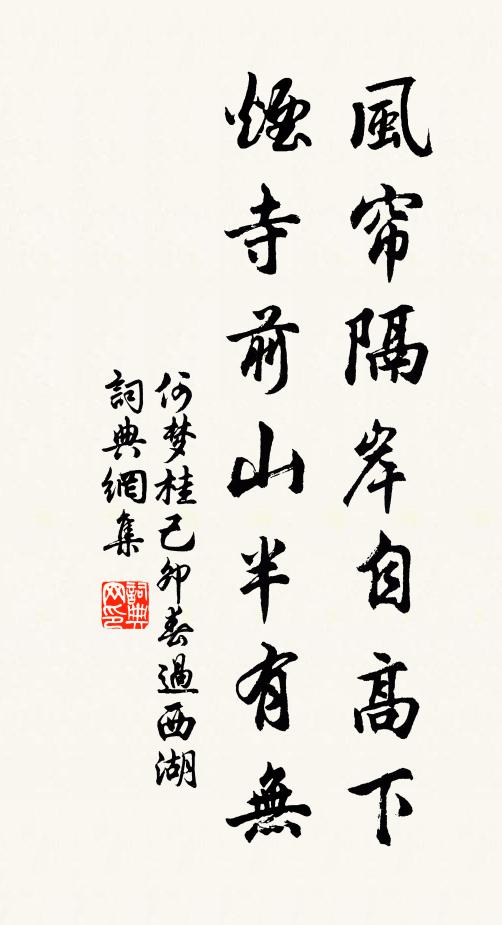 風帘隔岸自高下
煙寺前山半有無
何梦桂己卯春過西湖
詞典網集
詞典
网印